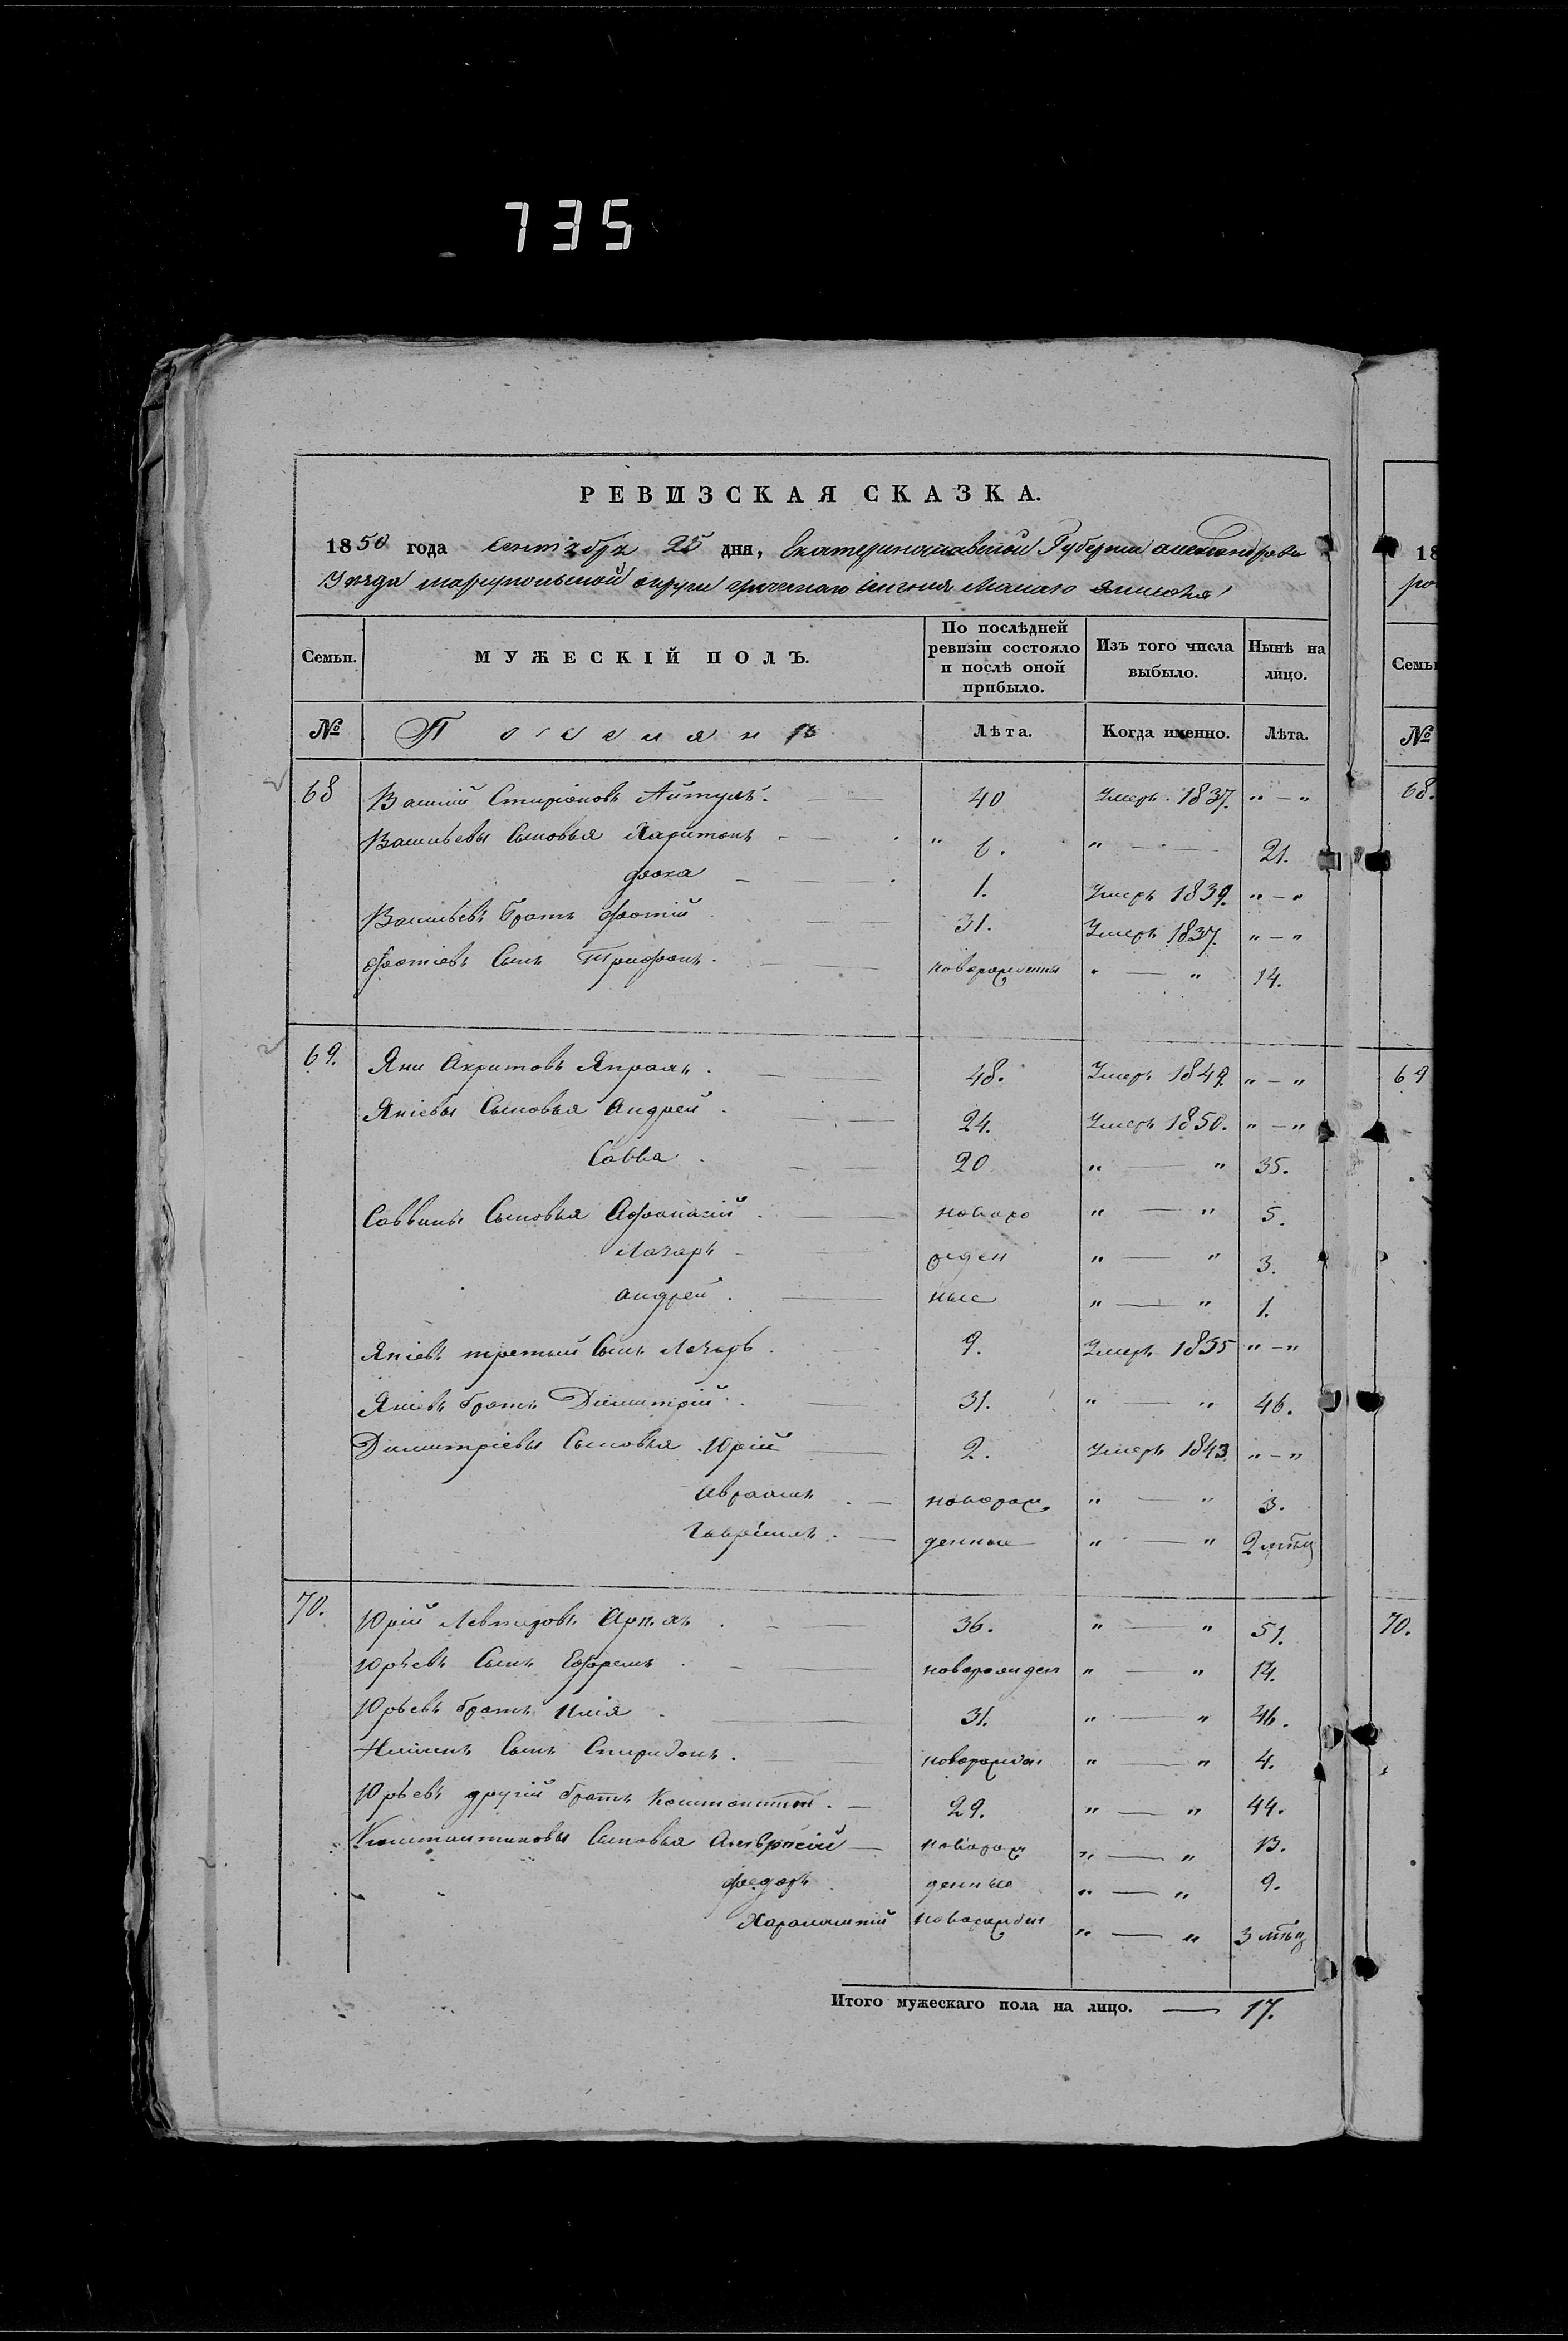 735
РЕВИЗСКАЯ СКАЗКА.
1850 года Сентября 25 дня, Екатеринославской Губернии александров
Уезда мариупольской округи греческаго селения Малаго Янисоля
Семьи. МУЖЕСКІЙ ПОЛЪ. По послѣдней ревизіи состояло и послѣ оной прибыло. Изъ того числа выбыло. Нынѣ на лицо.
№ Поселянъ Лѣта. Когда именно. Лѣта.
68 Василий Спиріоновъ 40 Умеръ 1837. " — "
Васильевы Сыновья Харитонъ 6. " — 21.
фока 1. Умеръ 1839. " — "
Васильевъ братъ Фотій 31. Умеръ 1837. " — "
Фотіевъ Сынъ Трифонъ. новорожденны " — " 14.
69. Яни 48. Умеръ 1849. " — "
Яніевы Сыновья Андрей 24. Умеръ 1850. " — "
Савва 20 " — " 35.
Саввины Сыновья Афонасій новоро " — " 5.
Лазарь жден " — " 3.
андрей ные " — " 1.
Яніевъ третьий Сынъ Лазарь 9. Умеръ 1835 " — "
Яніевъ братъ Димитрій 31. " — " 46.
Димитріевы Сыновья Юрій 2. Умеръ 1843 " — "
Авраамъ новорож " — " 3.
Гавріилъ. денные " — " 2 мѣц
70. Юрій 36. " — " 51.
Юрьевъ Сынъ Ефремъ новорожден " — " 14.
Юрьевъ братъ Илія 31. " — " 46.
Иліинъ Сынъ Спиридонъ. новорожден " — " 4.
Юрьевъ другій братъ Константин. 29. " — " 44.
Константиновы Сыновья новорож " — " 13.
федоръ денные " — " 9.
Харлампий новорожден " — " 3 мѣц
Итого мужескаго пола на лицо. — 17.
18
ро
Семьи
№
68.
69
70.